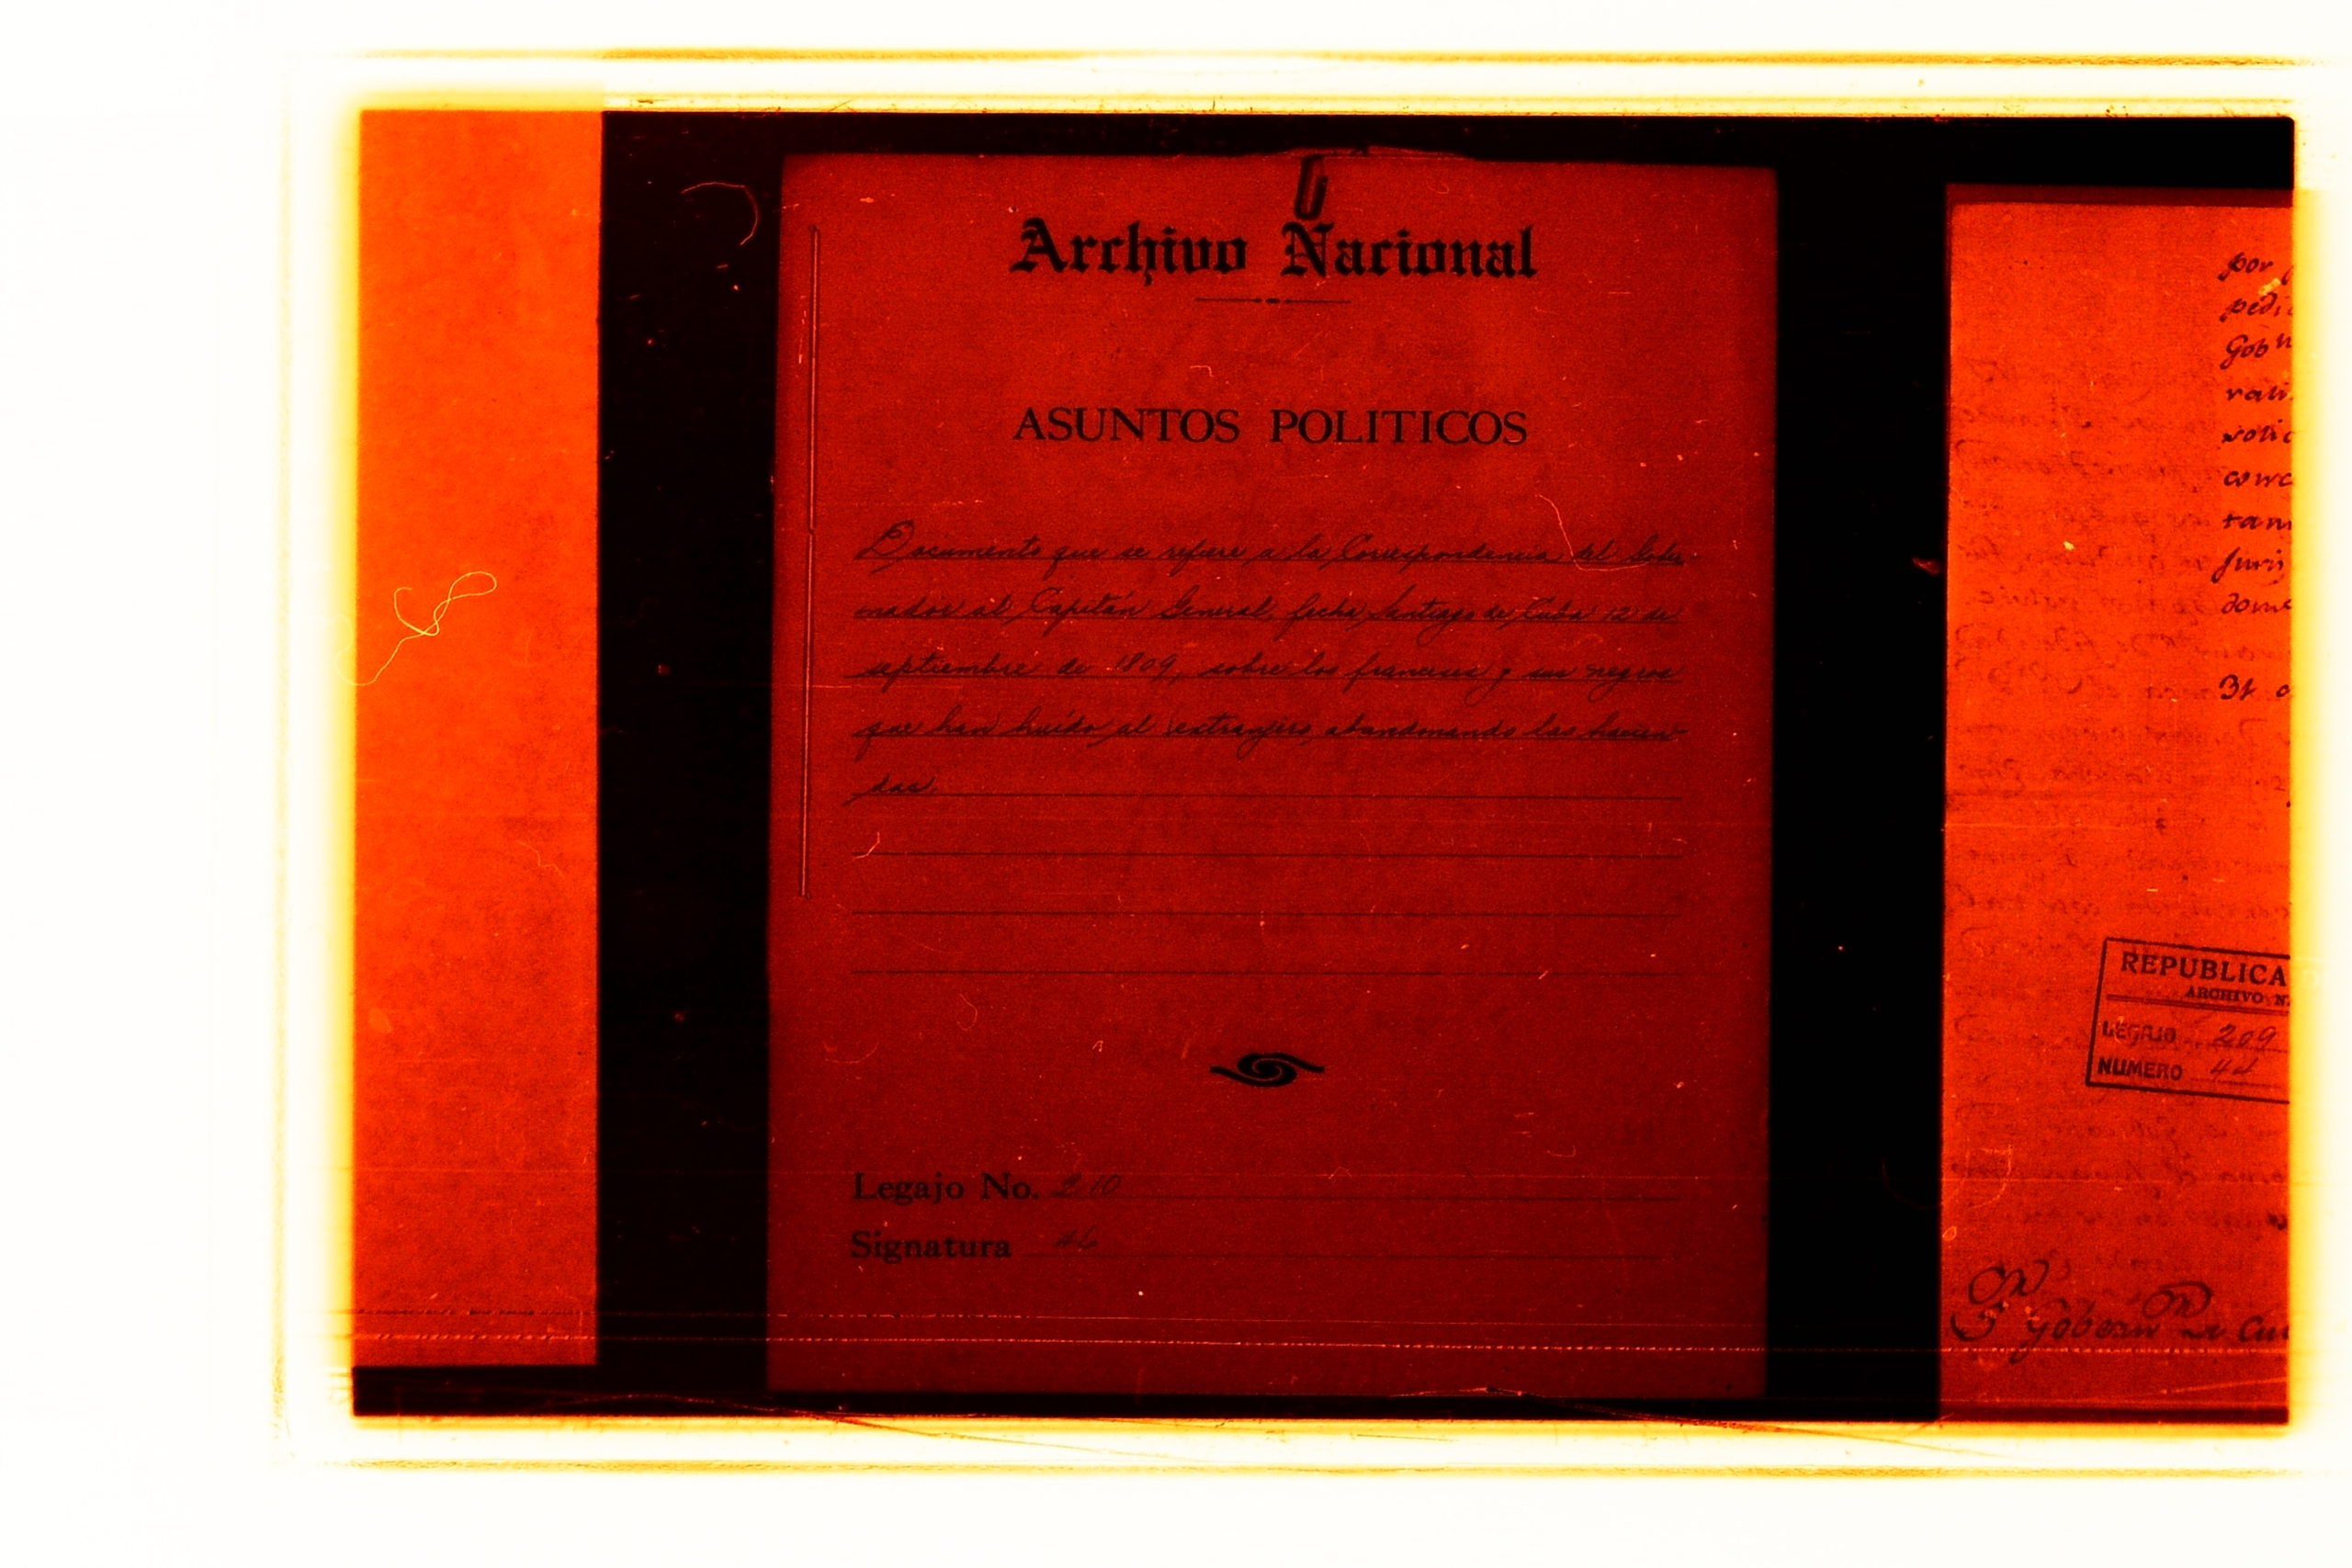 Archivo Nacional
ASUNTOS POLITICOS
Documento que se refiere a la Correspondencia del Gober-
nador al Capitán General, fecha Santiago de Cuba 12 de
septiembre de 1809, sobre los franceses y sus negros
que han huido al extranjero, abandonando las hacien-
das.
Legajo No. 210
Signatura
por
pedi
Gob
vali
solic
conc
tam
Juri
dome
31
REPUBLICA
ARCHIVO N
LEGAJO 209
NUMERO 44